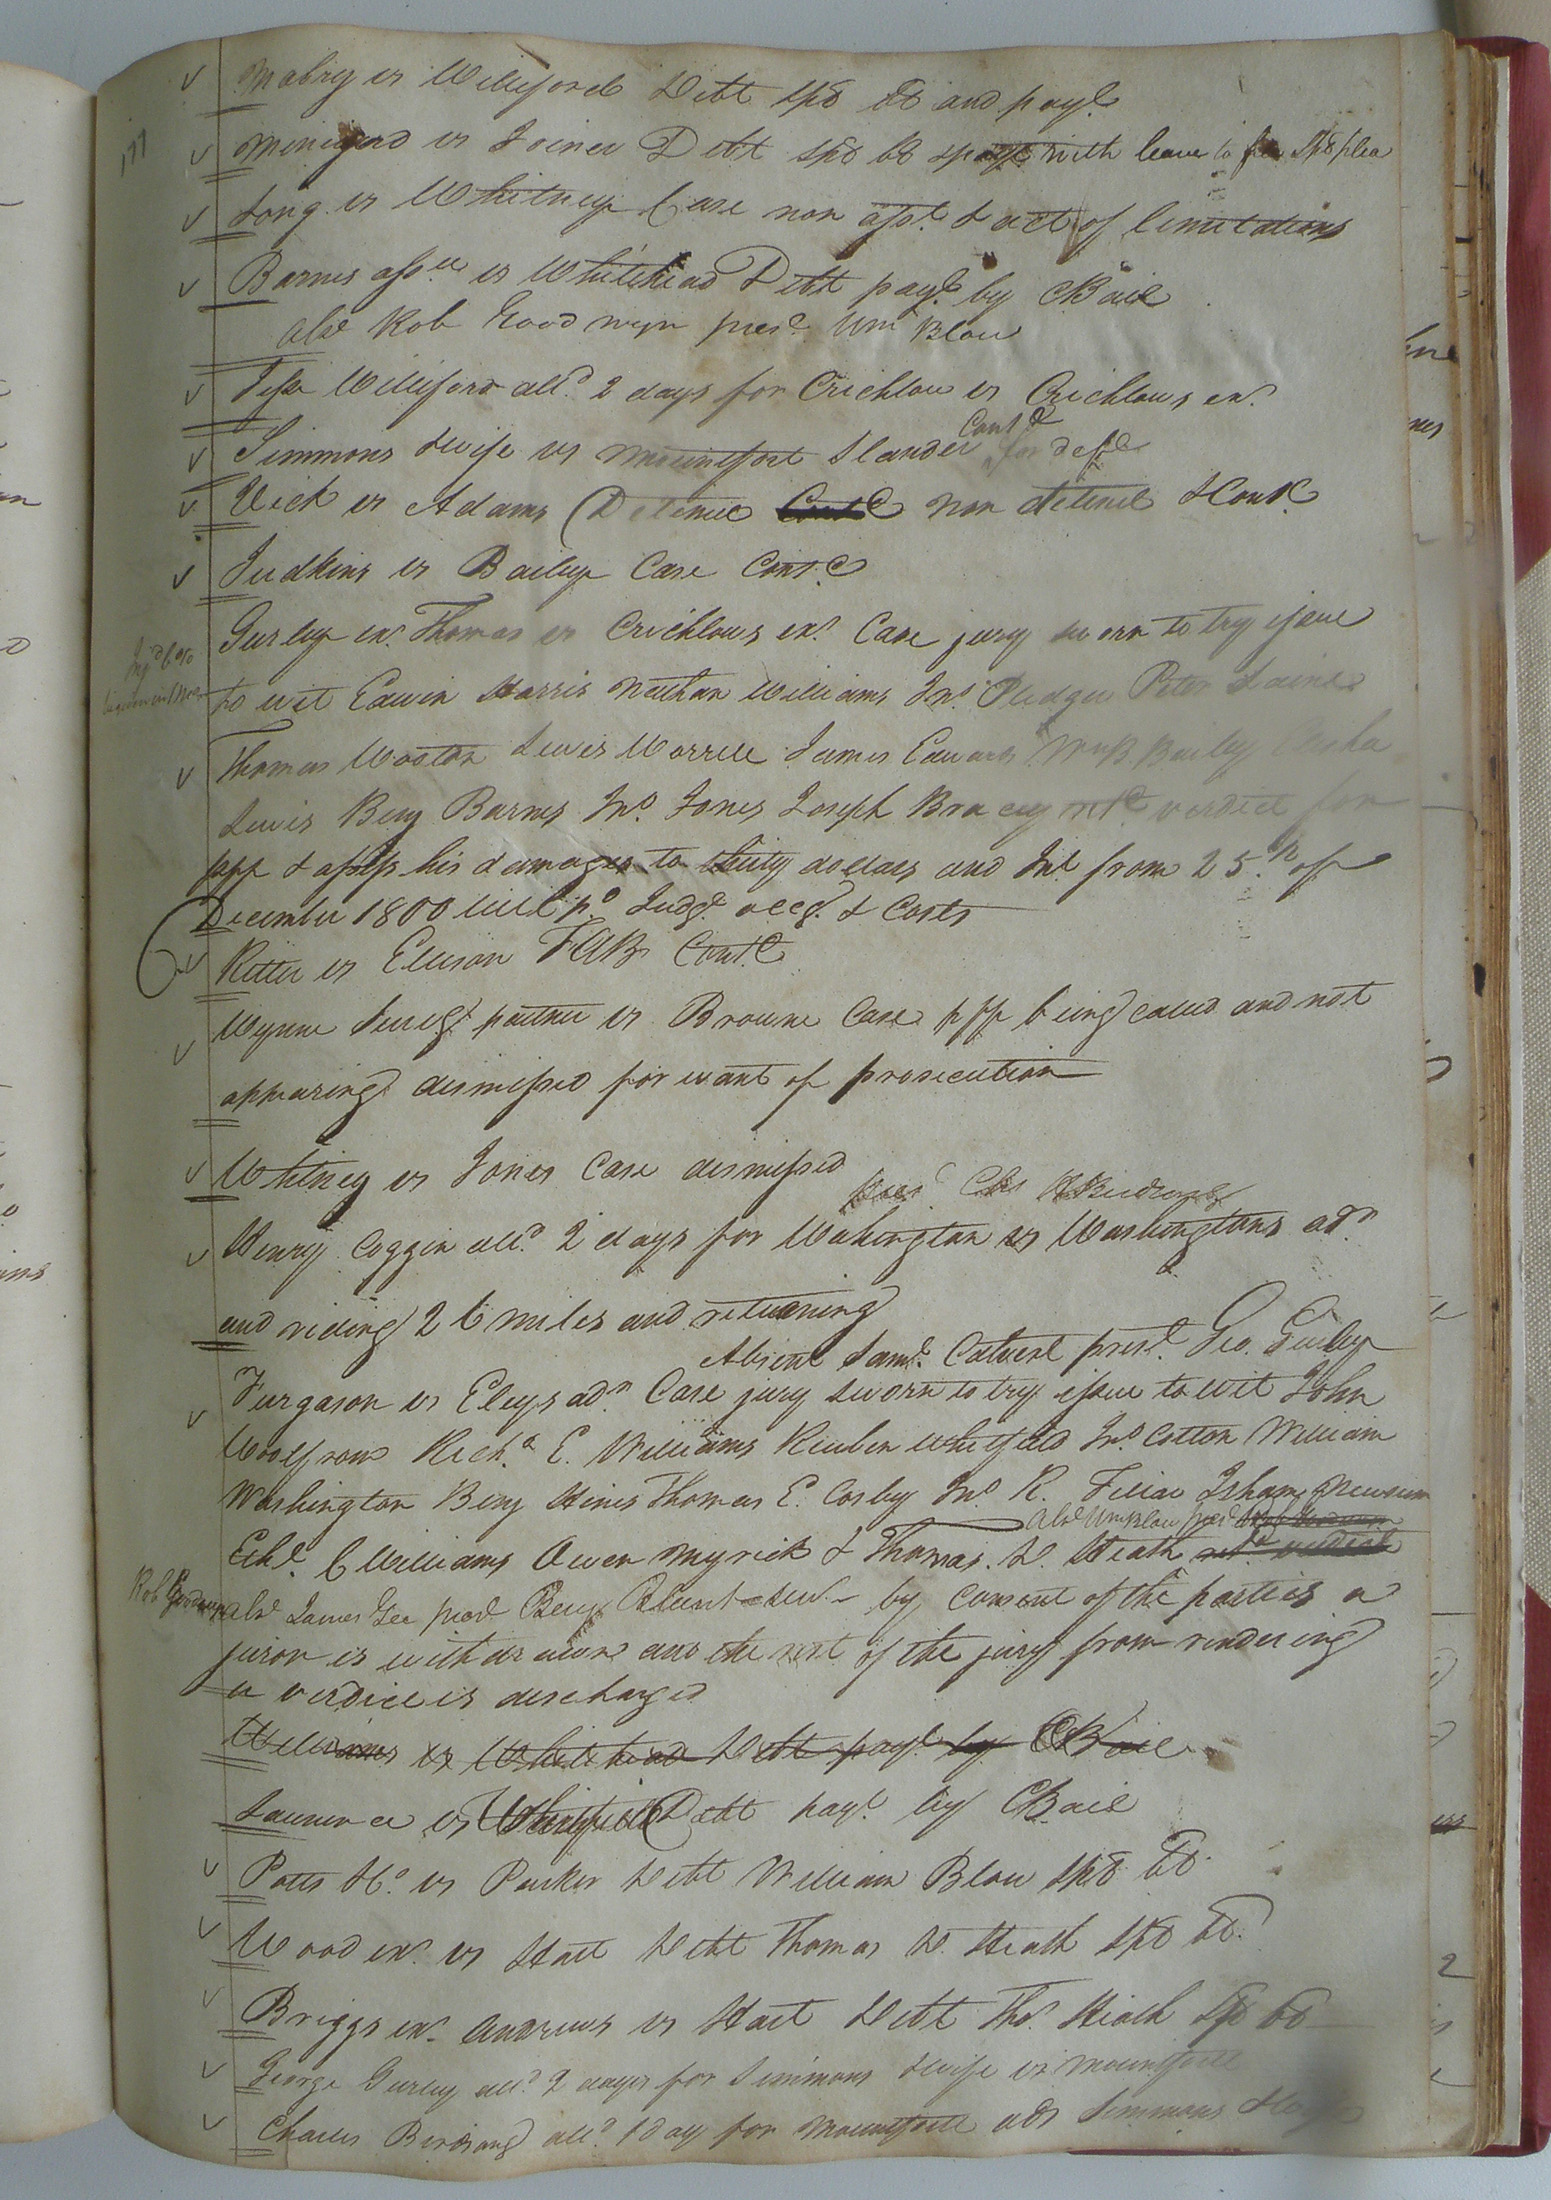 177
Mabry vs Williford Debt spo bo and payt.
vs Joiner Debt spo bo & payt with leave to file spo plea
Long vs Whitney Case non asst. & act of limitations
Barnes assee vs Whitehead Debt payt. by CBail
Abst Rob Goodwyn prest. Wm Blow
Jesse Williford alld. 2 days for Crichlow vs Crichlows exr.
Contd
Simmons & wife vs Mountfort Slander for deft
Vick vs Adams Detinue Contd non detinet & Contd.
Judkins vs Bailey Case Contd
Gurley exr. Thomas vs Crichlows exr. Case jury sworn to try issue
to wit Edwin Harris Nathan Williams Jno. Pledger Peter Laine
Thomas Wooton Lewis Worrell James Edwards Bailey
Lewis Benj Barnes Jno. Jones Joseph Bracey retd verdict for
plff & assess his damages to thirty dollars and Int from 25th of
December 1800 till pd. Judgt. accg. & Costs
Ritter vs Ellison TAB Contd
Wynne Survg. partner vs Browne Case plff being called and not
appearing dismissed for want of prosecution
Whitney vs Jones Case dismissed
prest Chs Birdsong
Henry Coggin alld. 2 days for Wahington vs Washingtons adr.
and riding 26 miles and returning
Absent Saml. Calvert prest. Geo. Gurley
Furgason vs Eleys adr. Case jury sworn to try issue to wit John
Woolfrom Richd. E. Williams Reuben Whitfield Jno. Cotton William
Washington Benj Hines Thomas E. Cosby Jno. R. Isham Newsum
Abst Wm Blow prest Rob Goodwyn
Ethd. C Williams Owen Myrick & Thomas. W. Heath retd. verdict
Rob Goodwyn
Abst James Gee prest Benj Blunt by consent of the parties a
juror is withdrawn and the rest of the jury from rendering
a verdict is discharged
Williams vs Whitehead Debt payt by CBail
Laurence vs Whitfield Debt payt. by CBail
Potts &Co. vs Parker Debt William Blow spo bo.
Wood exr. vs Hart Debt Thomas W. Heath spo bo.
Briggs exr. Andrews vs Hart Debt Thos. Heath spo bo
George Gurley alld. 2 days for Simmons & wife vs Mountfort
Charles Birdsong alld. 1 day for Mountfort ads Simmons &